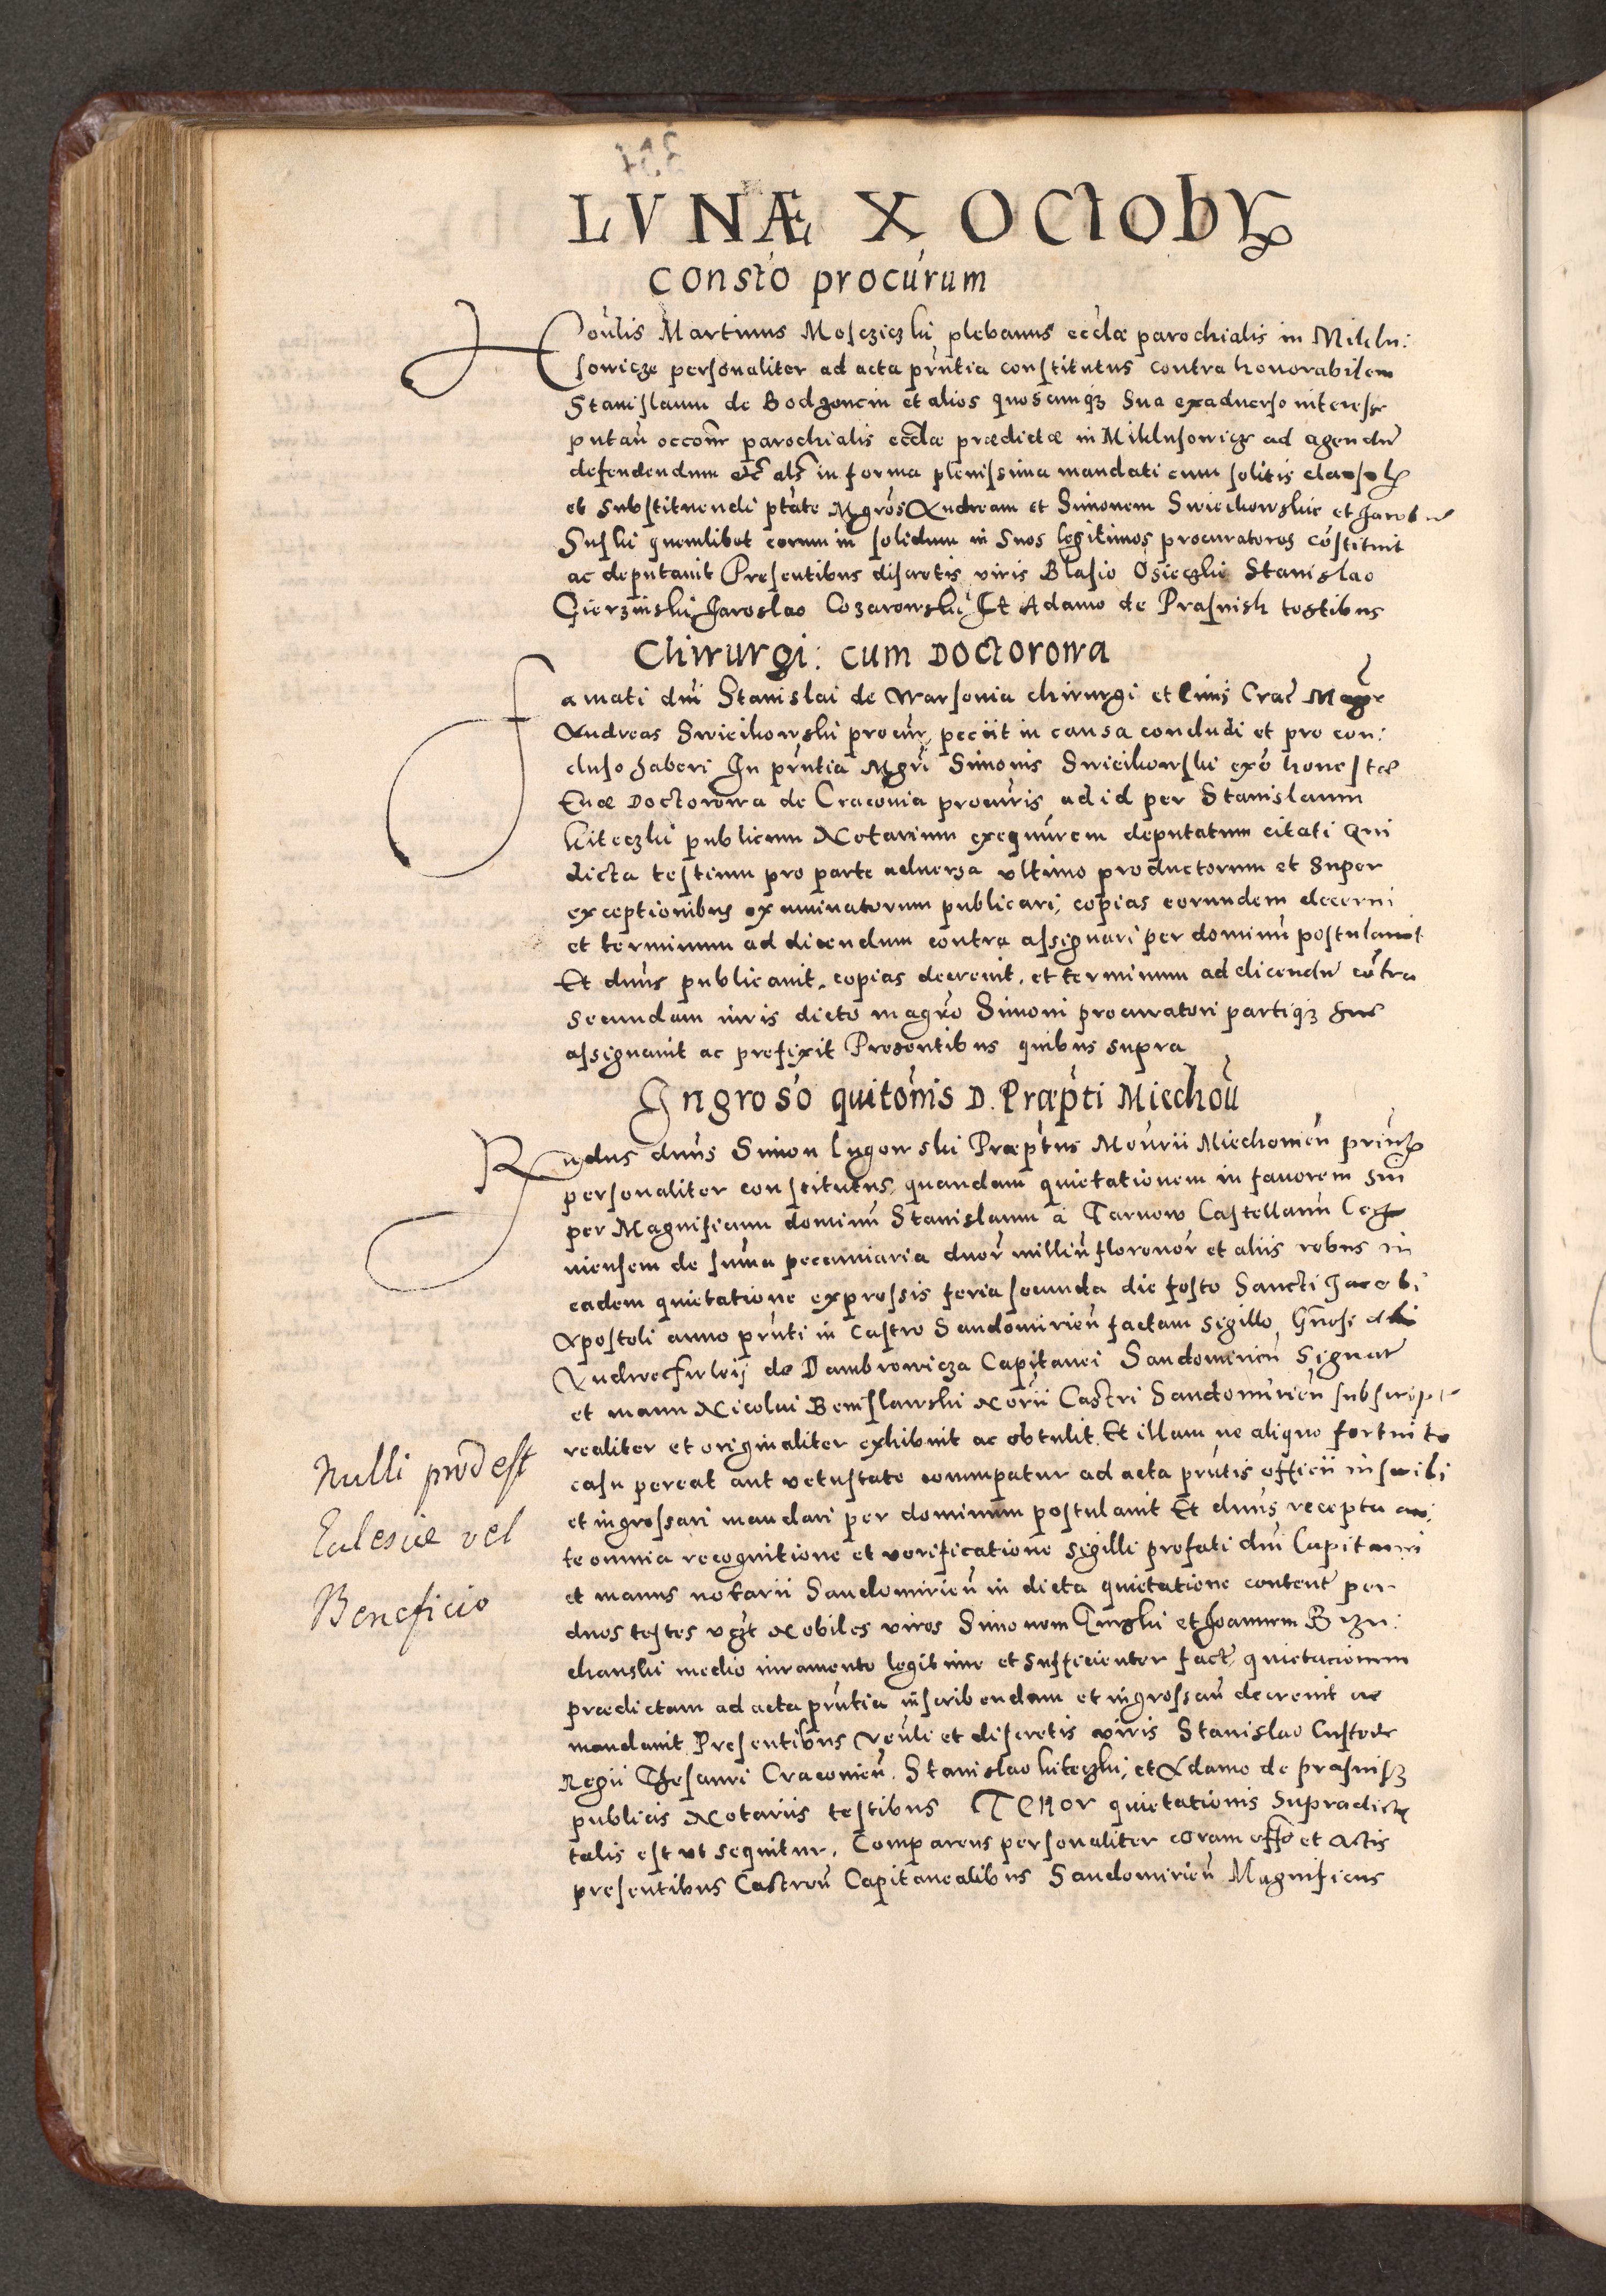 LVNÆ X OCtobrs
Constō procūrum
Hoūlis Martinus Mosczicʒki plebanus ecclæ parochialis in Miklu:
sowicze personaliter ad acta pn̄tia constitutus contra honorabilem
Stanislaum de Bodzoncin et alios quoscunqʒ sua exaduerso interesse
putan̄ occōne parochialis ecclæ prædictæ in Miklusowicze ad agendū
defendendum etc̄ als̄ in forma plenissima mandati cum solitis clausulis
et substituendi ptāte Mgrōs Andream et Simonem Swieikowskie et Jacobū
Suski quemlibet eorum in solidum in suos legitimos procuratores cōstituit
ac deputauit Presentibus discretis viris Blasio Osieczki Stanislao
Gierzinski Jaroslao Cozarowski Et Adamo de Prasnish testibus
Chirurgi: cum Doctorowa
Famati dn̄i Stanislai de Warsouia chirurgi et Ciuis Crac̄ Mag̃r
Andreas Swieikowski procūr peciit in causa concludi et pro con:
cluso haberi In pn̄tia Mgrī Simonis Swieikowski exō honestæ
Euæ Doctorowa de Cracouia procūris ad id per Stanislaum
kiteczki publicum Notarium exequūrem deputatum citati qui
dicta testium pro parte aduersa vltimo productorum et super
exceptionibus examinatorum publicari, copias eorundem decerni
et terminum ad dicendum contra assignari per dominū postulauit
Et dn̄us publicauit, copias decreuit, et terminum ad dicendū cōtra
secundam iuris dicto magr̄o Simoni procuratori partiqʒ suæ
assignauit ac prefixit Presentibus quibus supra
Ingrosō quitōnis D. Præpti Miechoū
Rn̄dus dn̄us Simon Lugowski Præptus Mon̄rii Miechouien̄ prīnr
personaliter constitutus, quandam quietationem in fauorem sui
per Magnificum dominū Stanislaum à Tarnow Castellanū Cech
niensem de summa pecuniaria duor̄ milliū florenor̄ et aliis rebus in
eadem quietatione expressis feria secunda die festo Sancti Jacobi
Apostoli anno pn̄ti in Castro Sandomirien̄ factam sigillo Gn̄osi dni
Andreæ firleij de Dambrowicza Capitanei Sandomirien̄ signat̄
et manu Nicolai Bemslawski Nōrii Castri Sandomirien̄ subscript
realiter et originaliter exhibuit ac obtulit. Et illam ne aliquo fortuito
casu pereat aut vetustate corrumpatur ad acta pn̄tis officii inscribi
et ingrossari mandari per dominum postulauit Et dn̄us recepta an:
te omnia recognitione et verificatione sigilli prefati dn̄i Capitanei
et manus notarii Sandomirien̄ in dicta quietatione content̄ per
duos testes vgʒt Nobiles viros Simonem Turski et Joannem Bzu:
chanski medio iuramento legitime et sufficienter fact̄, quietacionem
prædictam ad acta pn̄tia inscribendam et ingrossan̄ decreuit ac
mandauit. Presentibus Ven̄li et discretis viris Stanislao Custode
Regii Thesauri Cracouien̄. Stanislao kiteczki, et Adamo de prasnisʒ
publicis Notariis testibus Tenor quietationis supradictæ
talis est vt sequitur. Comparens personaliter coram offo et Actis
presentibus Castren̄ Capitanealibus Sandomirien̄ Magnificus
Nulli prodest
Eclesiæ vel
Beneficio